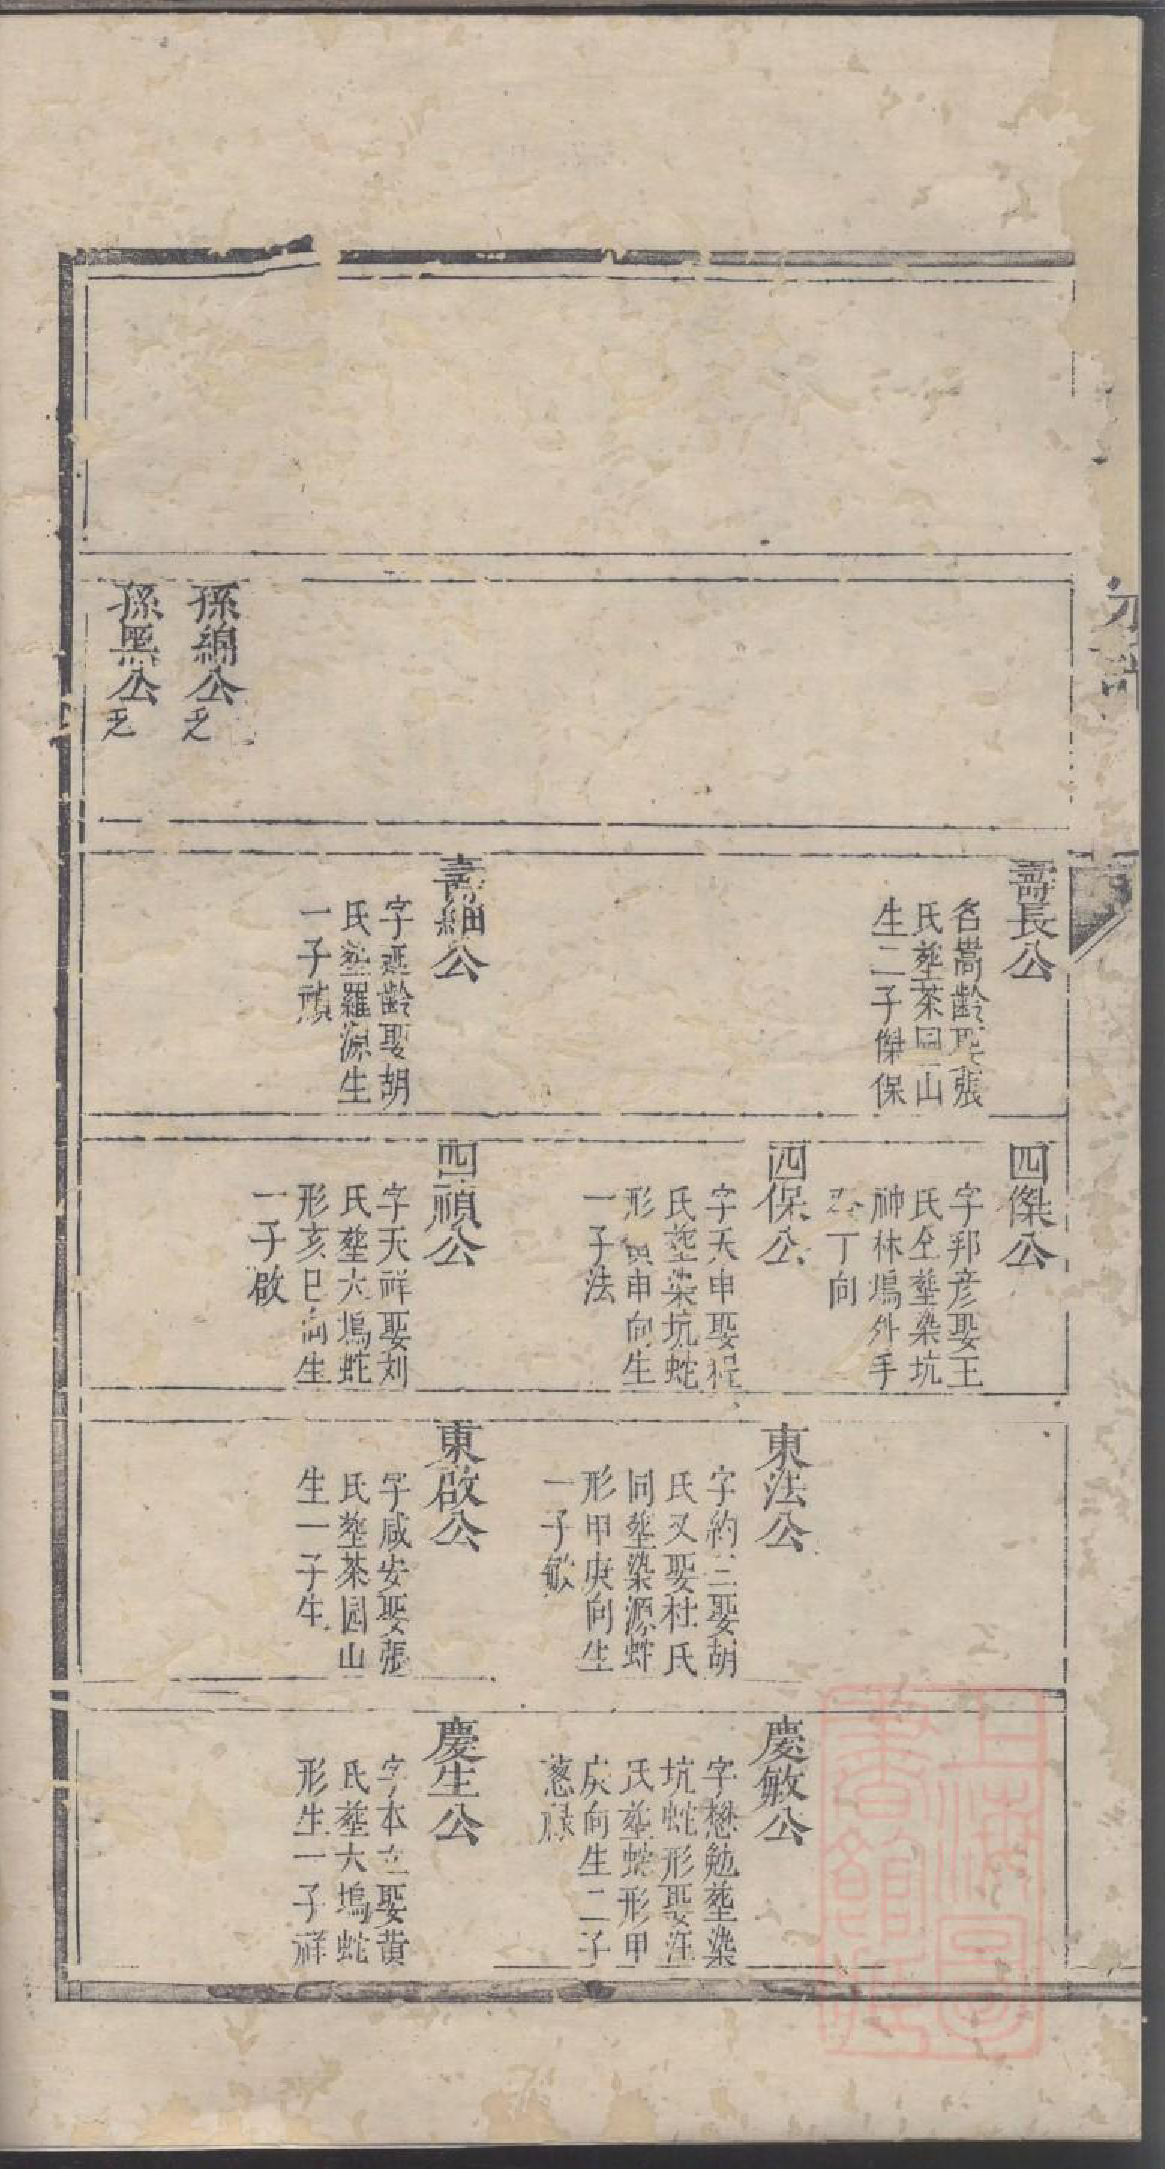 孫綿公乏
孫黑公乏
壽長公
名嵩齡娶張
氏塟茶园山
生二子傑保
壽細公
字延齡娶胡
氏塟羅源生
一子禎
四傑公
字邦彦娶王
氏仝塟染坑
神林塢外手
丁向
四保公
字天申娶程
氏塟染坑蛇
形寅申向生
一子法
四禎公
字天祥娶刘
氏塟六塢蛇
形亥巳向生
一子啟
東法公
字約三娶胡
氏又娶杜氏
同塟染源蛇
形甲庚向生
一子敏
東啟公
字咸安娶張
氏塟茶园山
生一子生
慶敏公
字懋勉塟染
坑蛇形娶汪
氏塟蛇形甲
庚向生二子
慈祿
慶生公
字本立娶黄
氏塟六塢蛇
形生一子祥
上海圖
書館藏